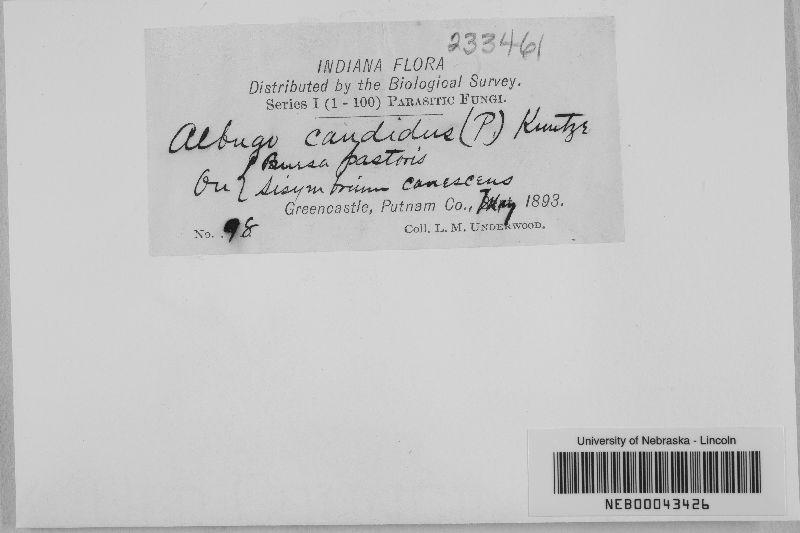 233461
INDIANA FLORA
Distributed by the Biological Survey.
Series I (1 - 100) PARASITIC FUNGI.
Albugo candidus (P) Kuntze
On { Bursa pastoris
Sisymbrium canescens
Greencastle, Putnam Co., May 1893.
No. 98 Coll. L. M. UNDERWOOD.
University of Nebraska - Lincoln
NEB00043426